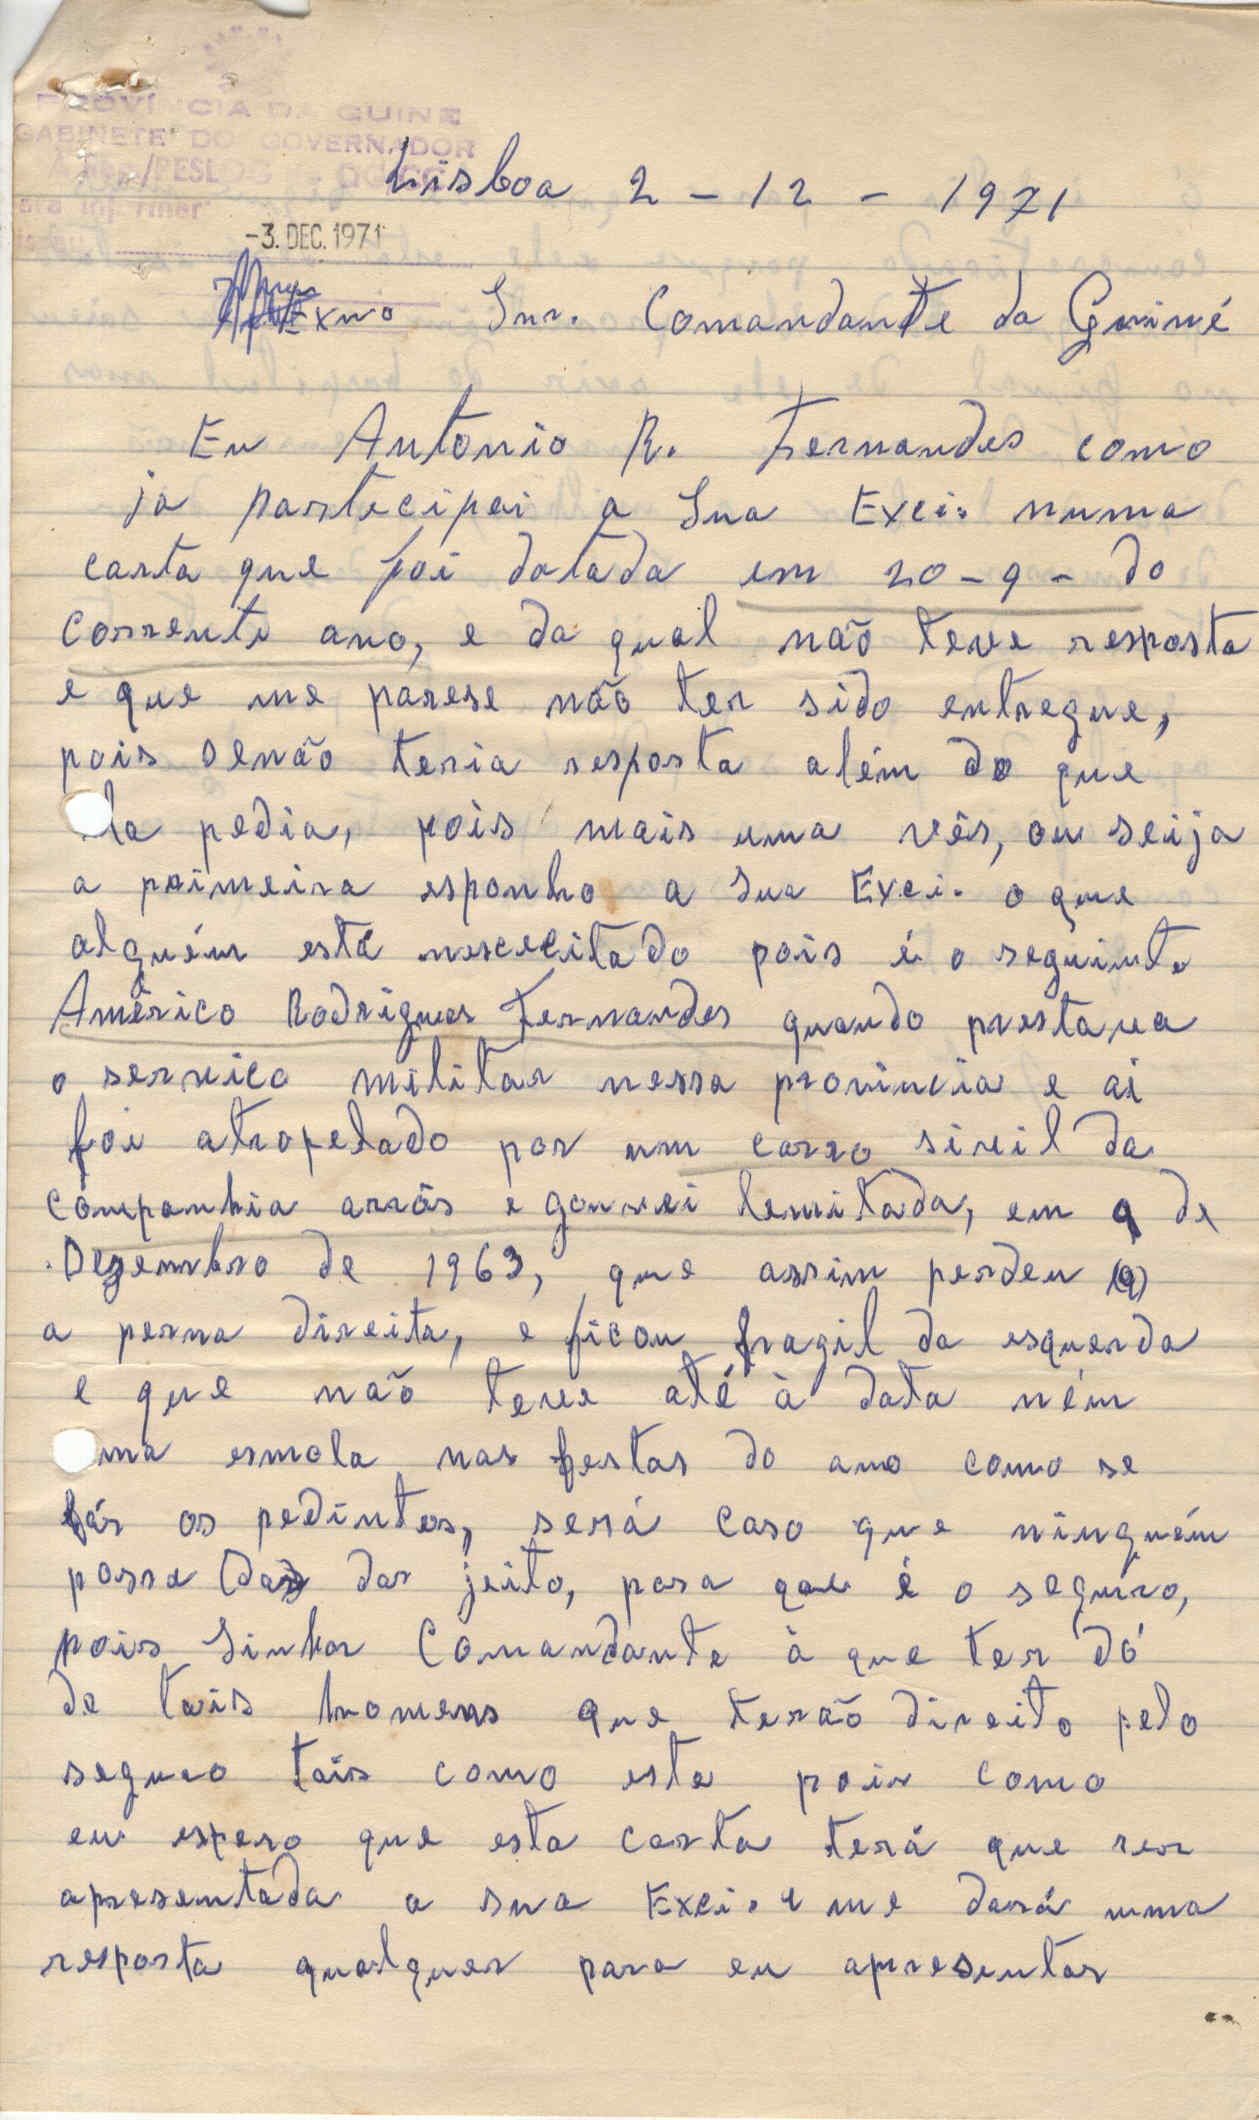 PROVÍNCIA DA GUINÉ
GABINETE DO GOVERNADOR
Lisboa 2 - 12 - 1971
-3. DEC. 1971
Exmo Snr. Comandante da Guiné
Eu Antonio R. Fernandes como
ja partecipei a Sua Exci. numa
carta que foi datada em 20-9- do
corrente ano, e da qual não teve resposta
e que me parese não ter sido entregue,
pois senão teria resposta além do que
la pedia, pois mais uma vês, ou seija
a primeira esponho a Sua Exci. o que
alguém está nescecitado pois é o seguinte
Américo Rodrigues Fernandes quando prestava
o serviço militar nessa provincia e ai
foi atropelado por um carro sivil da
companhia arrôs e gouvei lemitada, em 9 de
Dezembro de 1963, que assim perdeu (a)
a perna direita, e ficou fragil da esquerda
e que não teve até à data ném
ma esmola nas festas do ano como se
fás os pedintes, será caso que ninguém
possa dar jeito, para que é o seguro,
pois Sinhor Comandante à que ter dó
de tais homens que terão direito pelo
seguro tais como este pois como
eu espero que esta carta terá que ser
apresentada a sua Exci. e me dará uma
resposta qualquer para eu apresentar